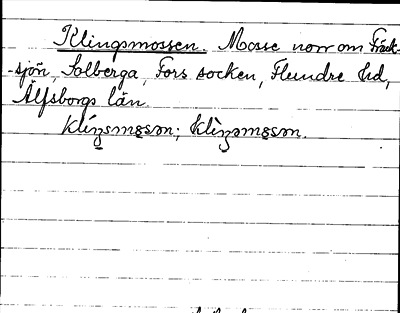 Klingsmossen. Mosse norr om Träsk-
-sjön, Solberga, Fors socken, Flundre hd,
Älfsborgs län.